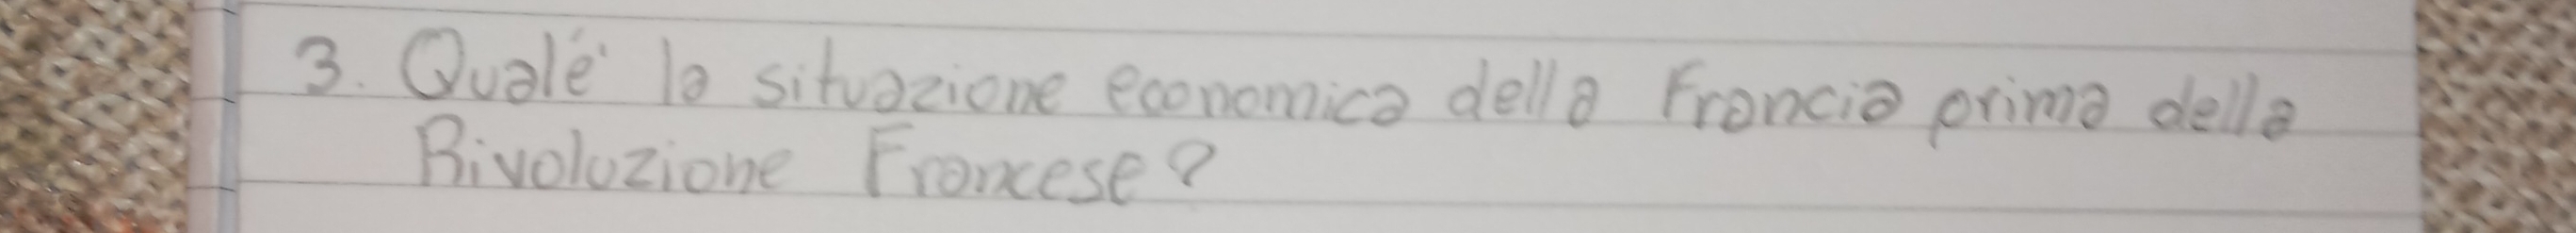 3. Qual'é la situazione economica della Francia prima della
Rivoluzione Francese?